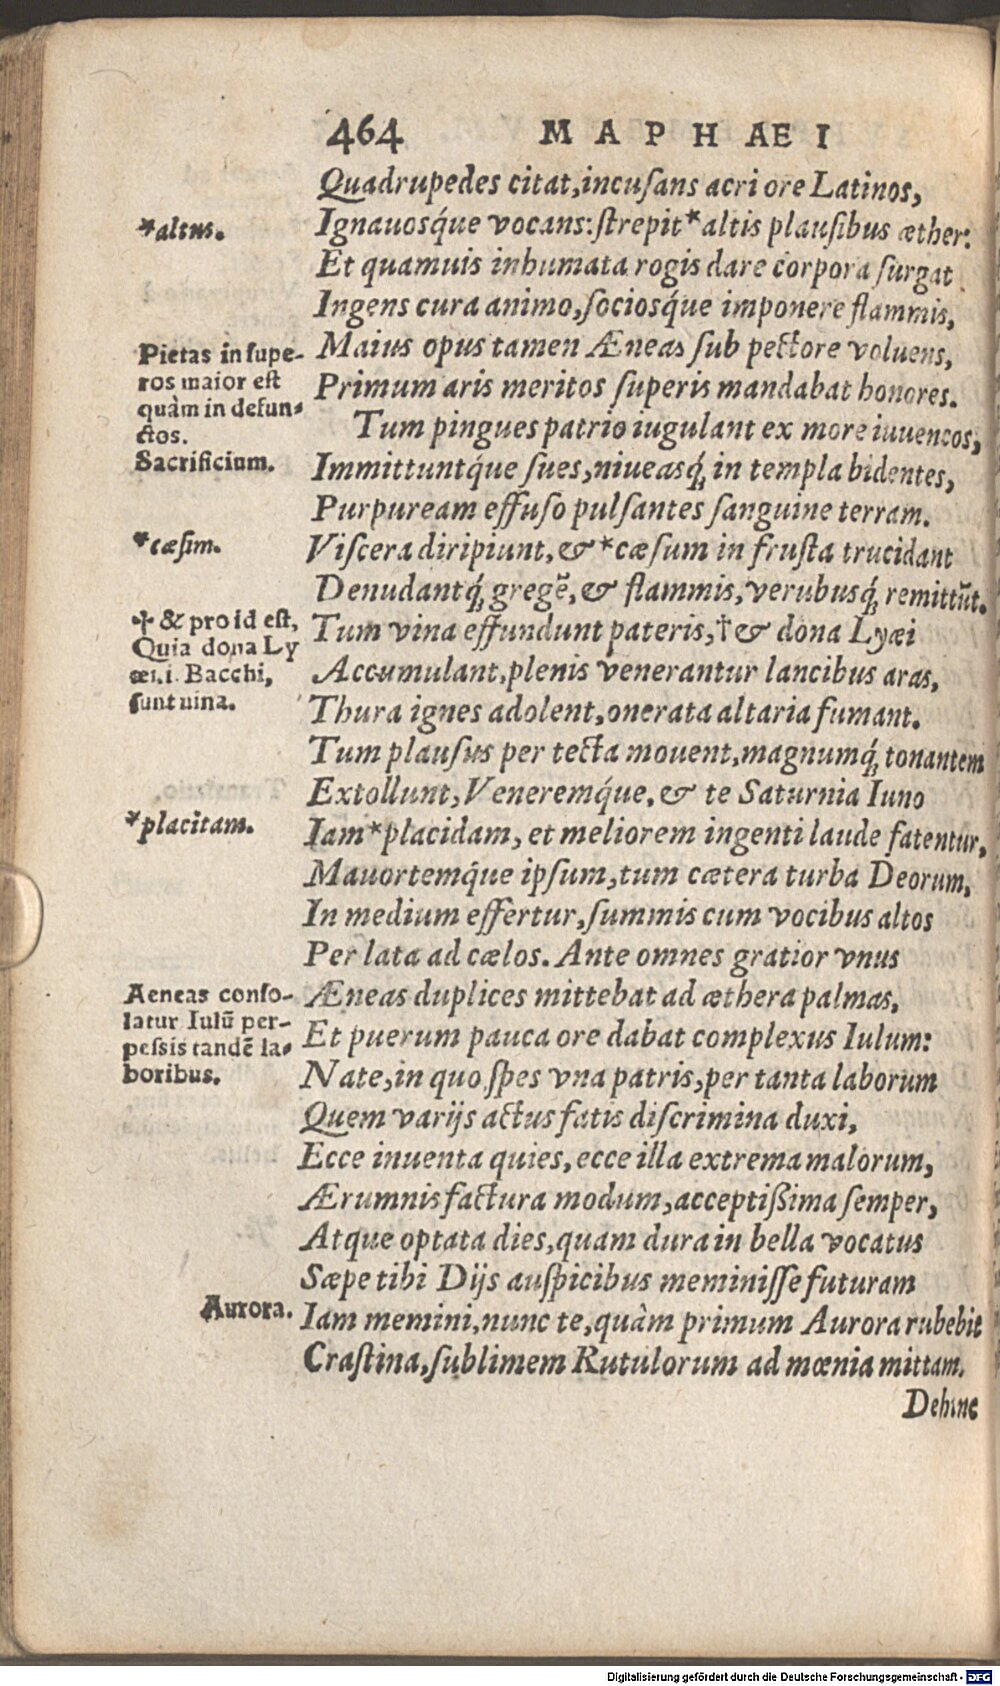 464 MAPHÆI
Quadrupedes citat,incuſans acri ore Latinos,
*altus.
Ignauosq́ue vocans:ſtrepit*altis plauſibus æther:
Et quamuis inhumata rogis dare corpora ſurgat
Ingens cura animo,ſociosq́ue imponere flammis,
Pietas in ſupe-
ros maior eſt
quàm in defun-
ctos.
Sacrificium.
Maius opus tamen Æneas ſub pectore voluens,
Primum aris meritos ſuperis mandabat honores.
Tum pingues patrio iugulant ex more iuuencos,
Immittuntq́ue ſues,niueasq́; in templa bidentes,
Purpuream effuſo pulſantes ſanguine terram.
*cæſim.
Viſcera diripiunt,&*cæſum in fruſta trucidant
Denudantq́; gregē,& flammis,verubusq́; remittūt.
✢ & pro id eſt,
Quia dona Ly
æi.i. Bacchi,
ſunt uina.
Tum vina effundunt pateris,†& dona Lyæi
Accumulant,plenis venerantur lancibus aras,
Thura ignes adolent,onerata altaria fumant.
Tum plauſus per tecta mouent,magnumq́; tonantem
Extollunt,Veneremq́ue,& te Saturnia Iuno
*placitam.
Iam*placidam, et meliorem ingenti laude fatentur,
Mauortemq́ue ipſum,tum cætera turba Deorum,
In medium effertur,ſummis cum vocibus altos
Per lata ad cælos. Ante omnes gratior vnus
Aeneas conſo-
latur Iulū per-
peſsis tandē la-
boribus.
Æneas duplices mittebat ad æthera palmas,
Et puerum pauca ore dabat complexus Iulum:
Nate,in quo ſpes vna patris,per tanta laborum
Quem varijs actus fatis diſcrimina duxi,
Ecce inuenta quies,ecce illa extrema malorum,
Ærumnis factura modum,acceptißima ſemper,
Atque optata dies,quam dura in bella vocatus
Sæpe tibi Dijs auſpicibus meminiſſe futuram
Aurora.
Iam memini,nunc te,quàm primum Aurora rubebit
Craſtina,ſublimem Rutulorum ad mœnia mittam.
Dehinc
Digitalisierung gefördert durch die Deutsche Forschungsgemeinschaft - DFG